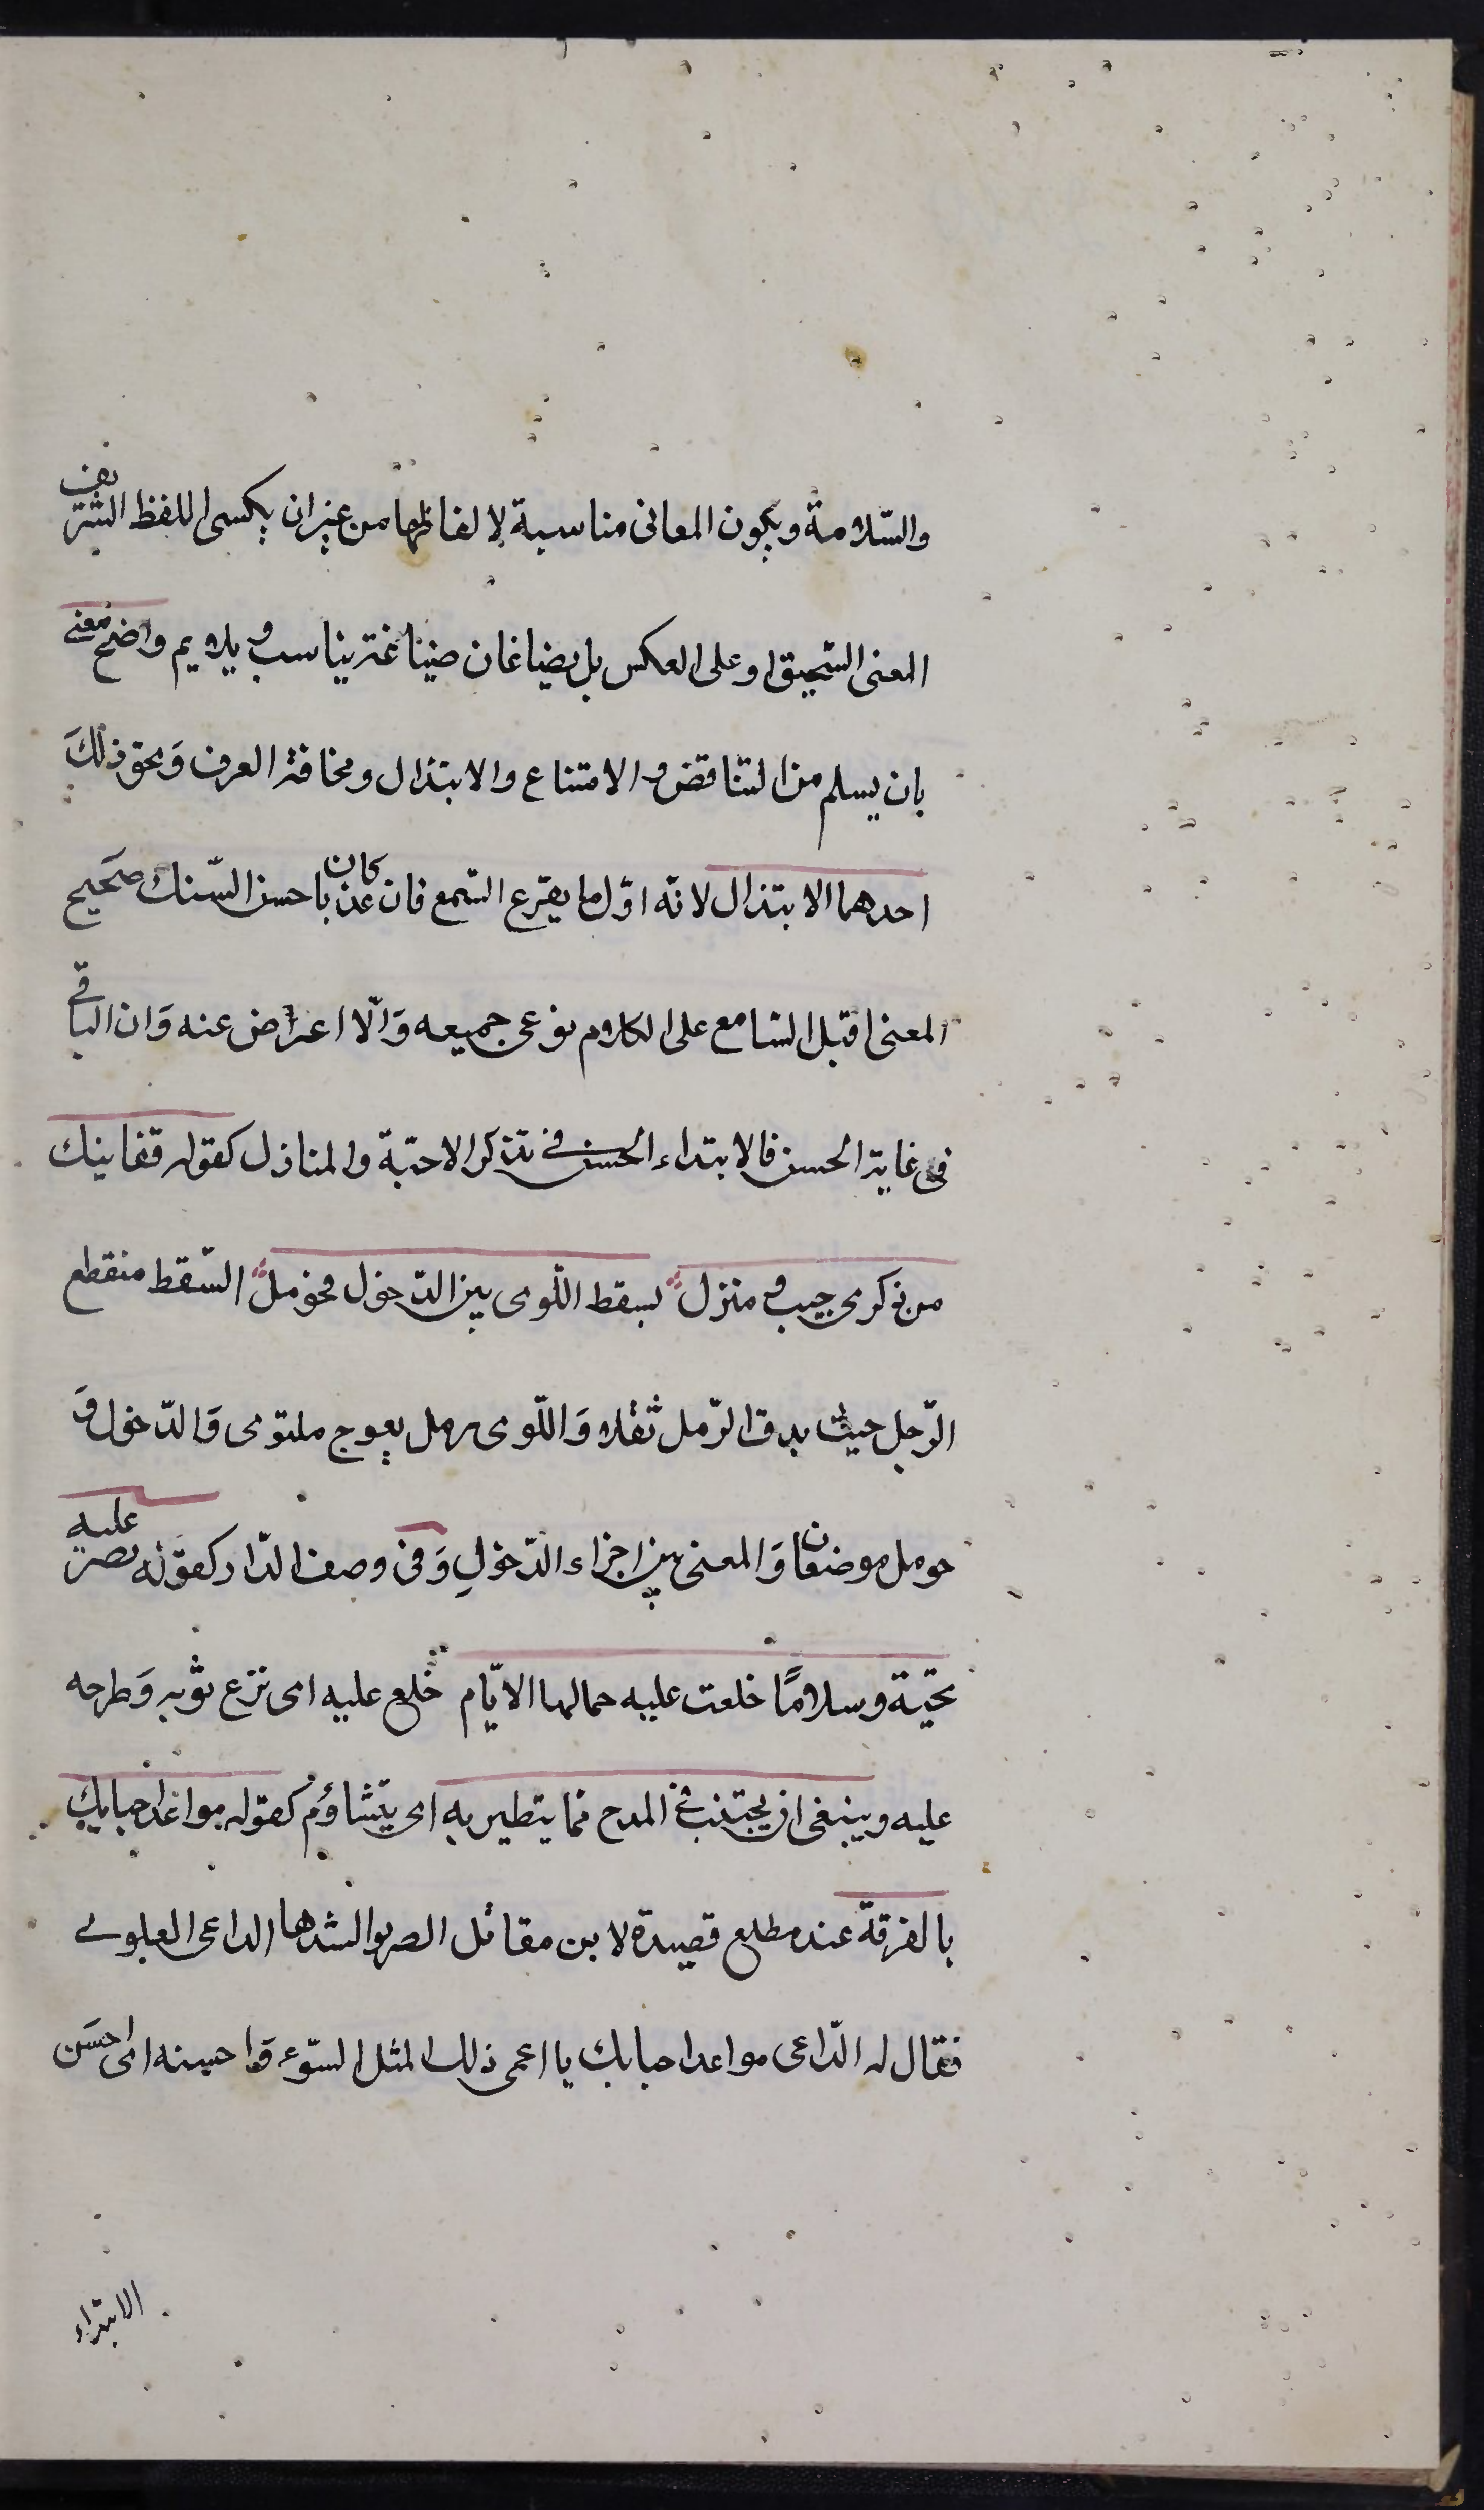 والسّلامة ويكون المعانى مناسبة لالفاظها من غير ان يكسى اللفظ الشريف
المعنى السّحيق او على العكس بل يضاغان صيناغة يناسب ويلايم واضح معنى
بان يسلم من التناقض والامتناع والابتذال ومخافة العرف وَبحق ذلكَ
احدهما الابتذال لانّه اوّل ما يقرع السّمع فان كان عذبا حسن السّنك صحيح
المعنى اقبل السّامع على الكلام نوعى جميعه وَالّا اعراض عنه وَان الباقى
فى غاية الحسن فالابتداء الحسن فى تذكر الاحبّة والمنازل كقوله قفا نبك
من ذكرى حبيب ومنزل بسقط اللّوى بين الدّخول فحومل السّقط منقطع
الرّجل حيث يدق الرّمل ثقلاه وَاللّوى رمل يعوج ملتوى وَالدّخول وَ
حومل موضعان وَالمعنى بين اجزاء الدّخولِ وَفى وصف الدّار كقوله قصر عليه
تحيّة وسلامًا خلعت عليه جمالها الايّام خلع عليه اى نزع ثوبه وَطرحه
عليه وينبغى ان يجتنب فى المدح مما يتطير به اى يتشاؤم كقوله مواعد احبابك
بالفرقة عنده مطلع قصيدة لابن مقاتل الضرير انشدها الداعى العلوى
فقال له الدّاعى مواعد احبابك يا اعمى ذلك المثل السّوء وَاحسنه اى احسَن
الابتداء